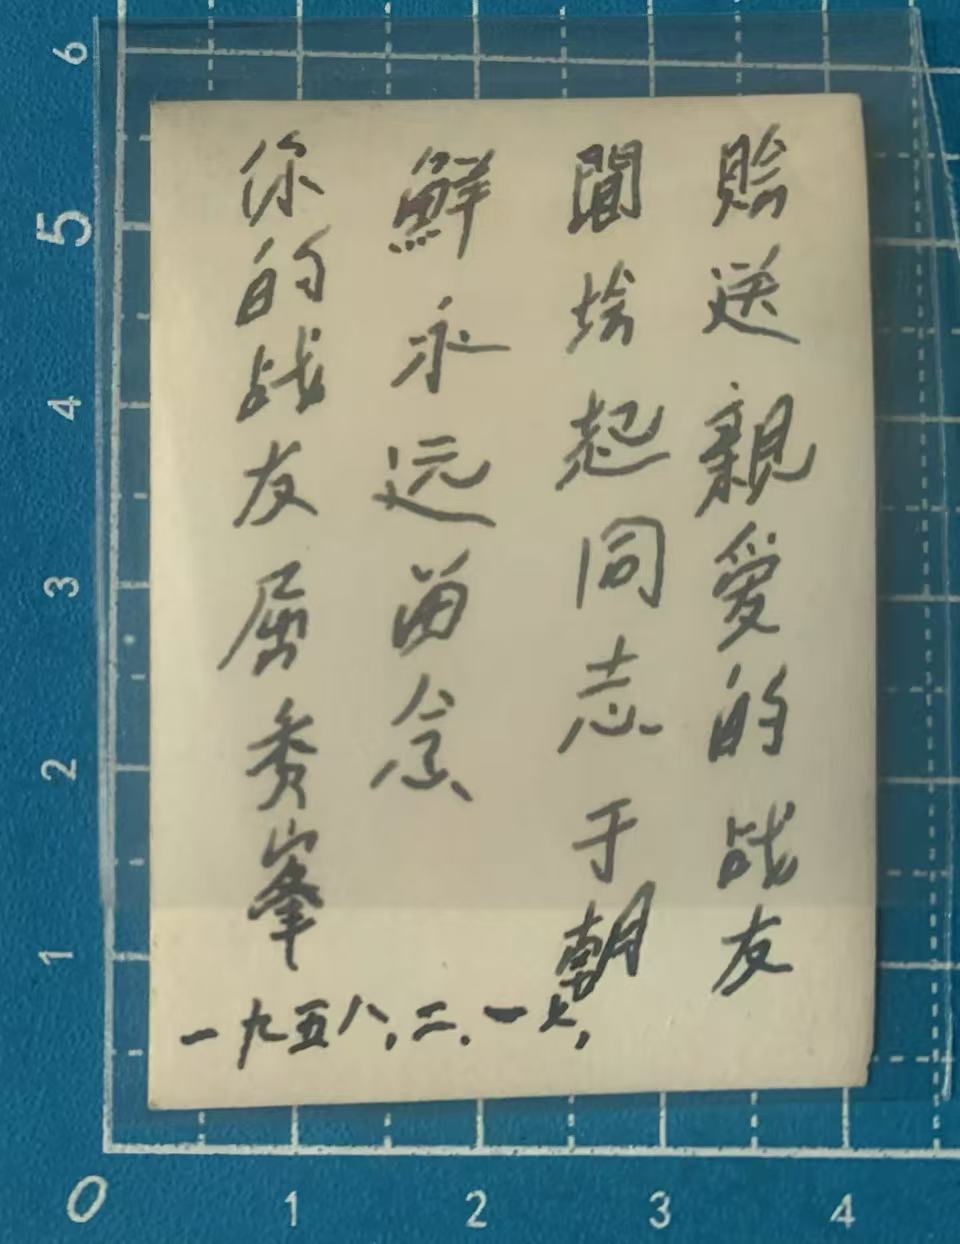 送親愛的战友
起同志于朝
鮮永远畄念
你的战友屈秀峯
一九五八.二.一七.
6
5
4
3
2
1
0
1
2
3
4